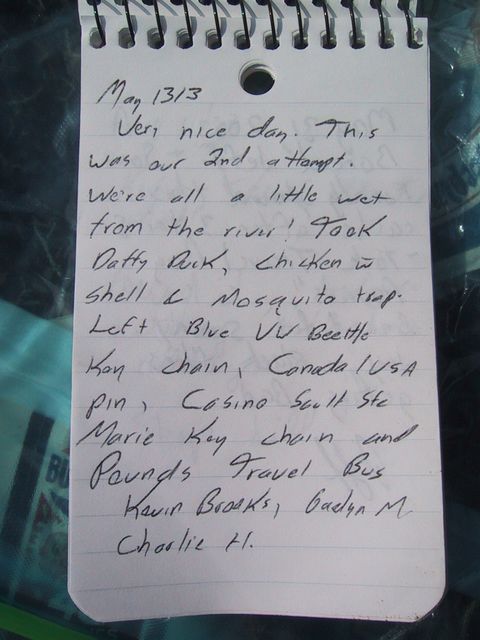 May 13/3
Very nice day. This
was our 2nd attempt.
We're all a little wet
from the river! Took
Daffy Duck, Chicken w
Shell & Mosquito trap.
Left Blue VW Beetle
Key chain, Canada/USA
pin, Casino Sault Ste
Marie Key chain and
Pounds Travel Bus
Kevin Brooks, M
Charlie H.
BU